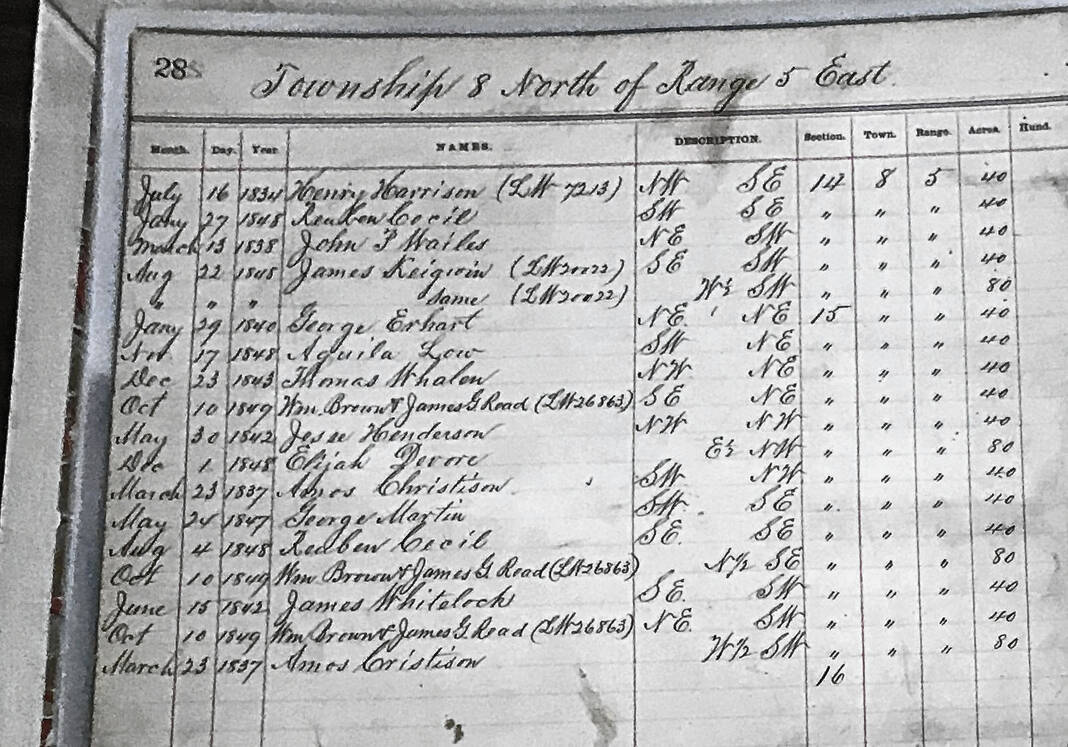 288
Township 8 North of Range 5 East.
Month. Day. Year. NAMES. DESCRIPTION. Section. Town. Range. Acres. Hund.
July 16 1834 Henry Harrison (LW 7213) NW SE 14 8 5 40
Jany 27 1848 Reuben Cecil SW SE " " " 40
March 13 1838 John P Wailes NE SW " " " 40
Aug 22 1848 James Keigwin (LW20022) SE SW " " " 40
" " " same (LW20022) W½ SW " " " 80
Jany 29 1840 George Erhart NE. NE 15 " " 40
Nov 17 1848 Aquila Low SW NE " " " 40
Dec 23 1843 Thomas Whalen NW NE " " " 40
Oct 10 1849 Wm. Brown & James G. Read (LW26863) SE NE " " " 40
May 30 1842 Jesse Henderson NW NW " " " 40
Dec 1 1848 Elijah Devore E½ NW " " " 80
March 23 1837 Amos Christison SW NW " " " 40
May 24 1847 George Martin SW SE " " " 40
Aug 4 1848 Reuben Cecil SE. SE " " " 40
Oct 10 1849 Wm Brown & James G. Read (LW26863) N½ SE " " " 80
June 15 1842 James Whitelock SE. SW " " " 40
Oct 10 1849 Wm Brown & James G. Read (LW26863) NE. SW " " " 40
March 23 1837 Amos Cristison W½ SW " " " 80
16